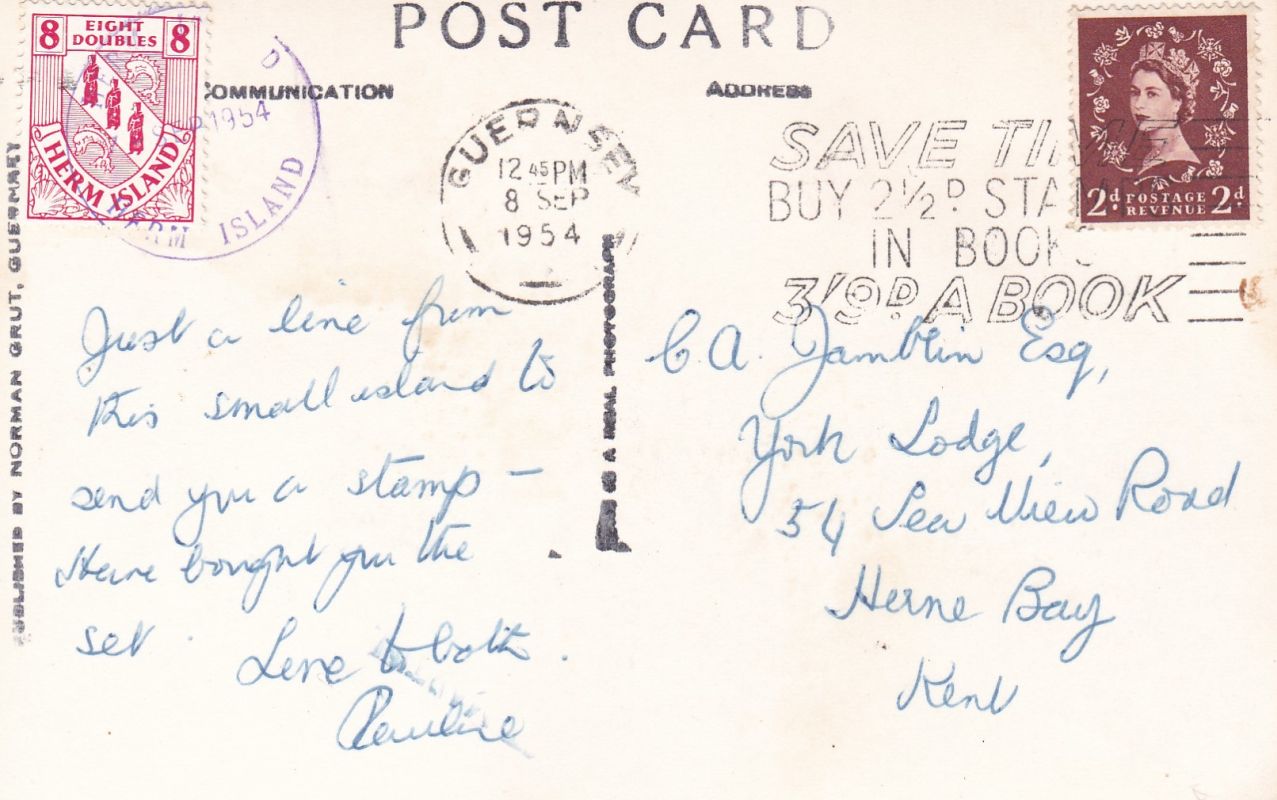 POST CARD
8 EIGHT DOUBLES 8
HERM ISLAND
1954
HERM ISLAND
COMMUNICATION
ADDRESS
GUERNSEY
12 45 PM
8 SEP
1954
SAVE TIME
BUY 2½D STA
IN BOOKS
3/9D A BOOK
2d POSTAGE REVENUE 2d
PUBLISHED BY NORMAN GRUT, GUERNSEY
IS A REAL PHOTOGRAPH
Just a line from
this small island to
send you a stamp –
Have bought you the
set.
Love to both.
Pauline
C. A. Jamblin Esq,
York Lodge,
54 Sea View Road
Herne Bay
Kent